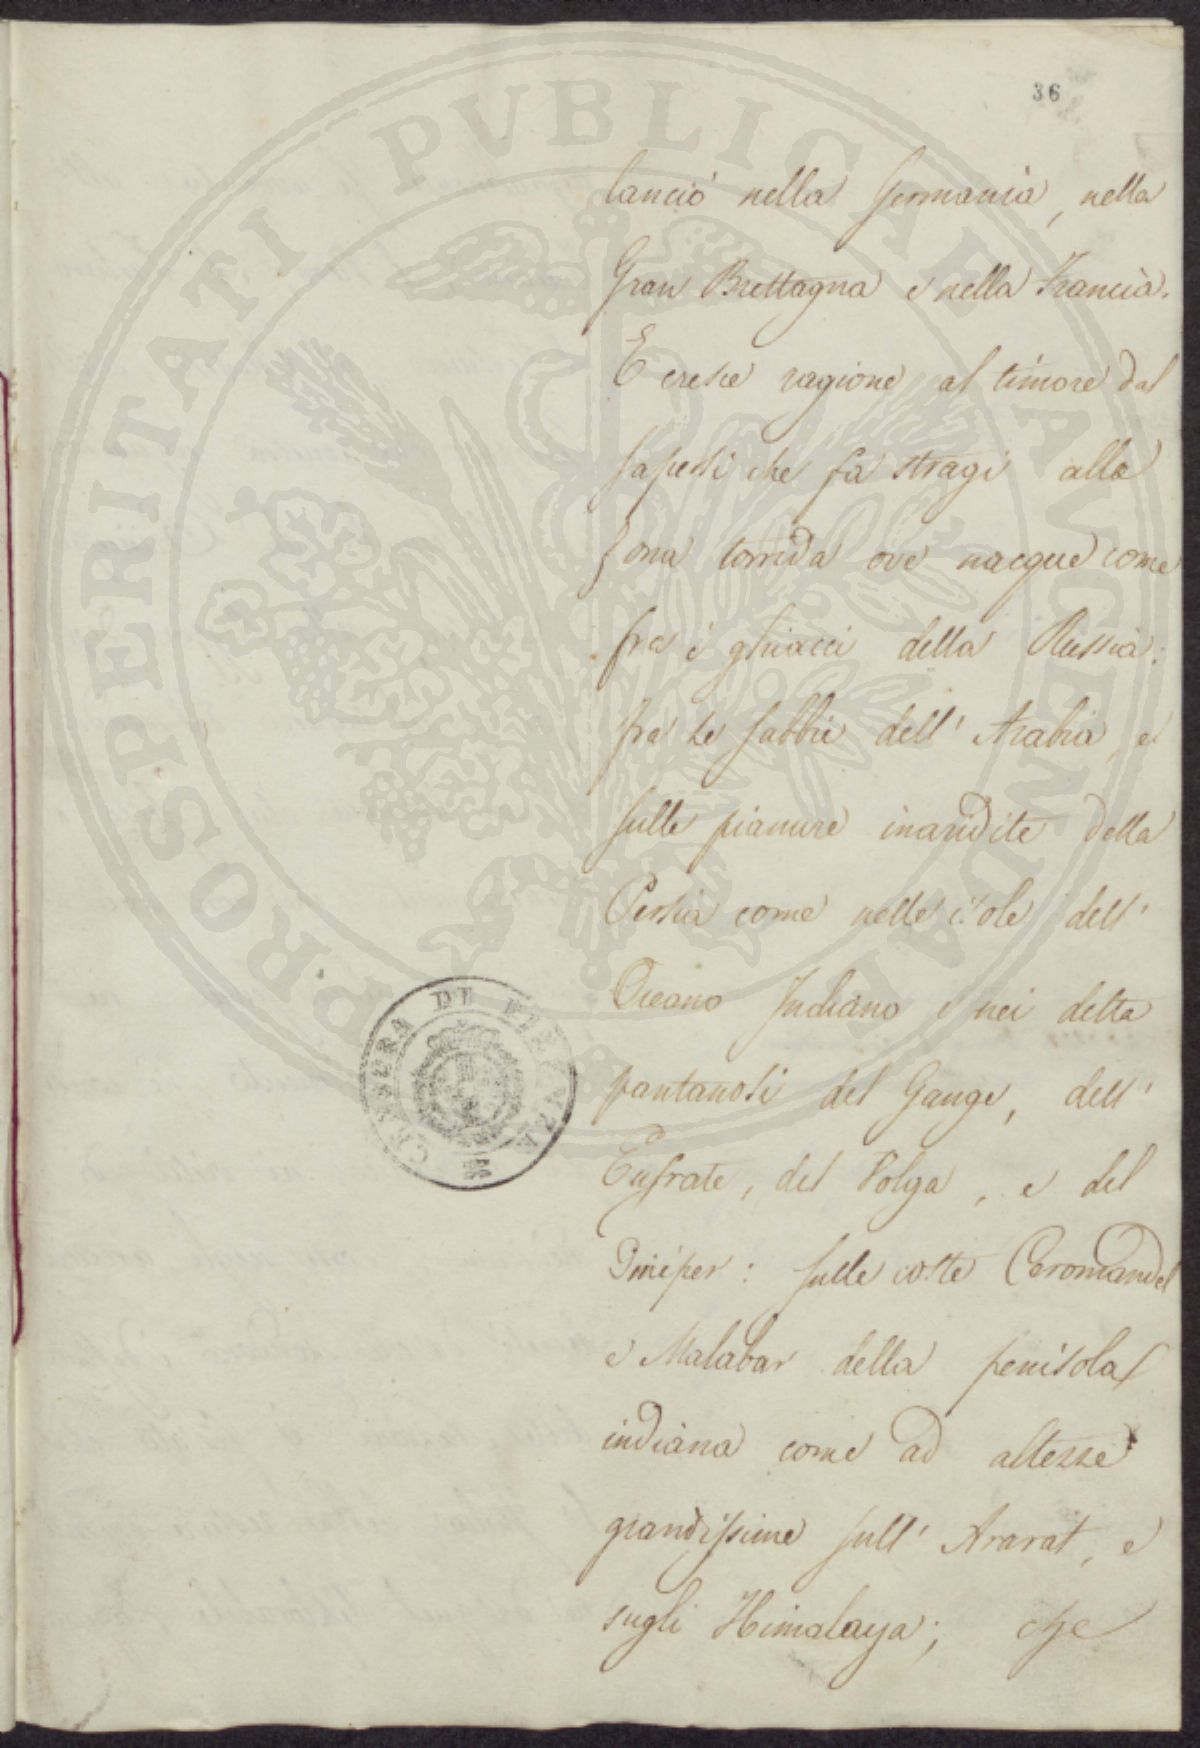 36
lanciò nella Germania, nella
Gran Brettagna e nella Francia.
E cresce ragione al timore dal
sapersi che fa stragi alla
zona torrida ove nacque come
fra i ghiacci della Russia:
fra le sabbie dell' Arabia, e
sulle pianure inaridite della
Persia come nelle isole dell'
Oceano Indiano e nei delta
pantanosi del Gange, dell'
Eufrate, del Volga, e del
Dniéper: sulle coste Coromandel
e Malabar della penisola
indiana come ad altezze
grandissime sull' Ararat, e
sugli Himalaya; che
CENSURA DI FIRENZE
PROSPERITATI PVBLICAE AVGENDAE